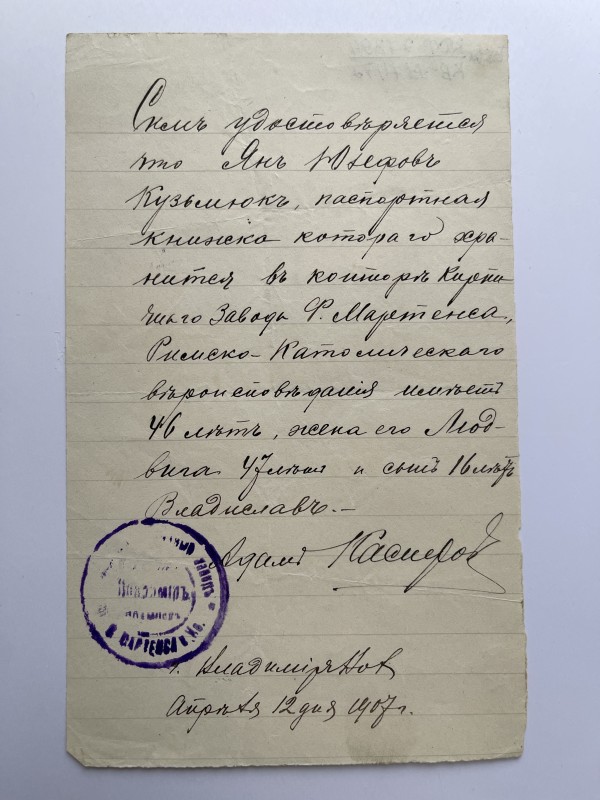 Симъ удостовѣряется
что Янъ Юзефовъ
Кузьмюкъ, паспортная
книжка котораго хра-
нится въ конторѣ Кирпи
чнаго Завода Ф. Мартенса,
Римско-Католическаго
вѣроисповѣданія имѣетъ
46 лѣтъ, жена его Люд-
вига 47 лѣтъ и сынъ 16 лѣтъ
Владиславъ.-
Адамъ
заводъ
МАРТЕНСА и Ко.
Апрѣля 12 дня 1907 г.